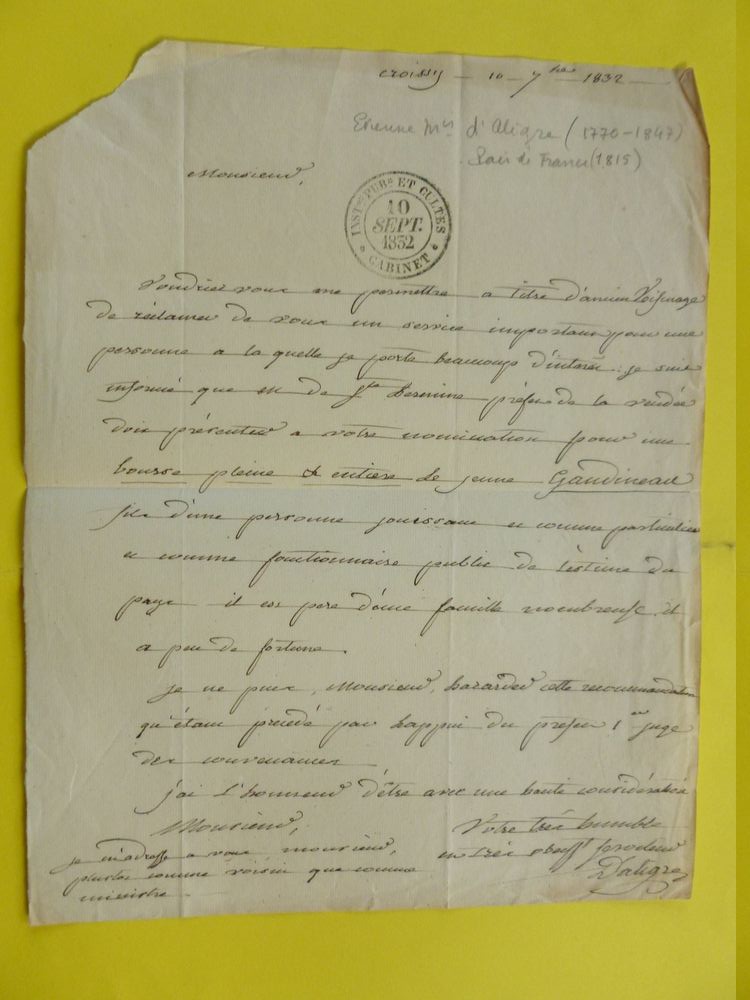 Croissy — 10 — 7bre 1832 —
Etienne Mis d'Aligre (1770-1847)
Pair de France (1815)
Monsieur,
INSTon PUBe ET CULTES
10
SEPT.
1832
CABINET
Voudriez vous me permettre a titre d'ancien Voisinage
de réclamer de vous un service important pour une
personne a la quelle je porte beaucoup d'interêt. je suis
informé que mr de Ste hermine préfet de la vendée
doit présenter a votre nomination pour une
bourse pleine et entiere le jeune Gandineau
fils d'une personne jouissant et comme particulier
et comme fonctionnaire public de l'estime du
pays il est pere d'une famille nombreuse. il
a peu de fortune.
je ne puis, Monsieur, hazarder cette recommandation
qu'étant précédé par l'appui du prefet 1er juge
des convenances
j'ai l'honneur d'être avec une haute considération
Monsieur,
Votre très humble
et très obeisst serviteur
Daligre
je m'adresse a vous, monsieur,
plutot comme voisin que comme
ministre.